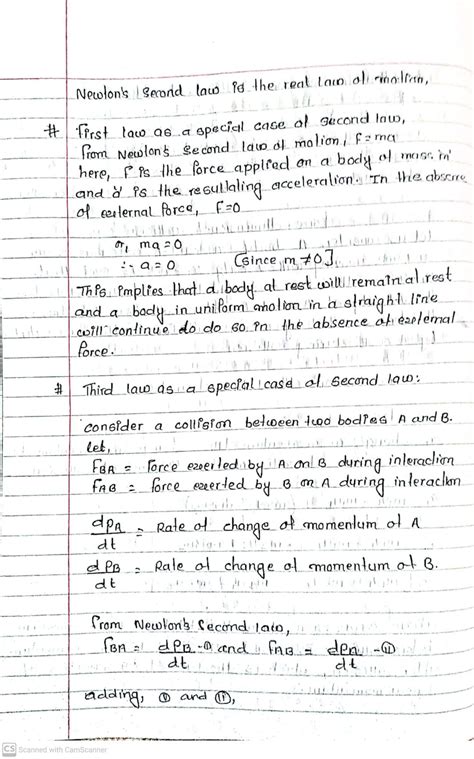 Newton's second law is the real law of motion,
# First law as a special case of second law,
From Newton's second law of motion, F=ma
here, F is the force applied on a body of mass 'm'
and 'a' is the resultating acceleration. In the absence
of external force, F=0
or, ma = 0
∴ a = 0 [since, m ≠ 0]
This implies that a body at rest will remain at rest
and a body in uniform motion in a straight line
will continue do do so in the absence of external
force.
# Third law as a special case of second law:
consider a collision between two bodies A and B.
let,
FBA = force exerted by A on B during interaction
FAB = force exerted by B on A during interaction
dPA/dt = Rate of change of momentum of A
dPB/dt = Rate of change of momentum of B.
From Newton's Second law,
FBA = dPB/dt -(i) and FAB = dPA/dt -(ii)
adding, (i) and (ii),
CS Scanned with CamScanner